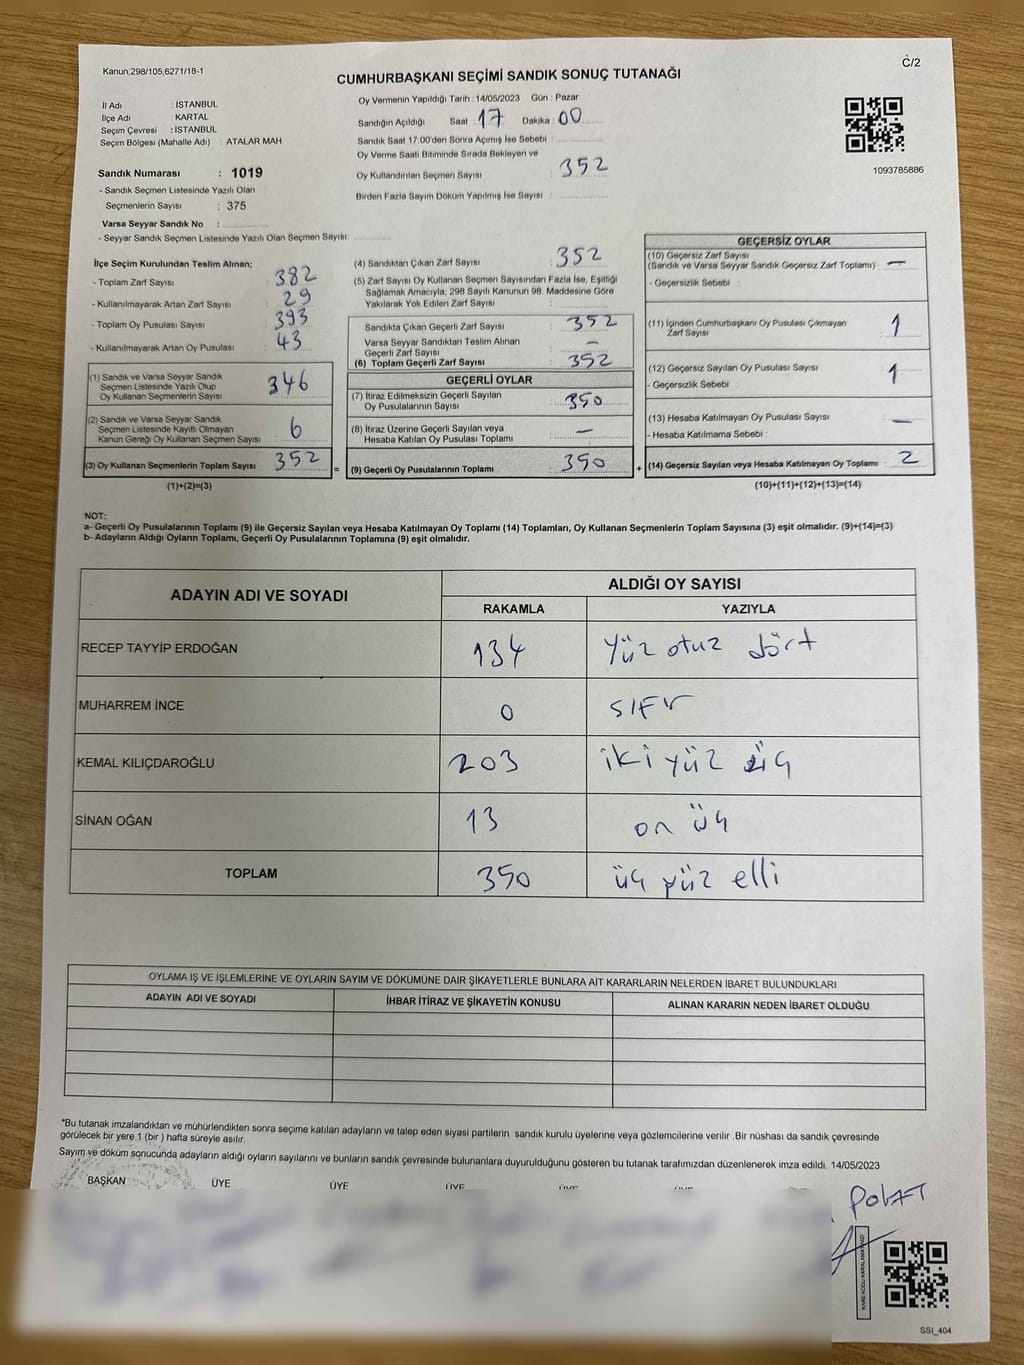 Kanun,298/105,6271/18-1
C/2
CUMHURBAŞKANI SEÇİMİ SANDIK SONUÇ TUTANAĞI
İl Adı : İSTANBUL
İlçe Adı : KARTAL
Seçim Çevresi : İSTANBUL
Seçim Bölgesi (Mahalle Adı) : ATALAR MAH
Sandık Numarası : 1019
- Sandık Seçmen Listesinde Yazılı Olan
Seçmenlerin Sayısı : 375
Varsa Seyyar Sandık No :
- Seyyar Sandık Seçmen Listesinde Yazılı Olan Seçmen Sayısı:
Oy Vermenin Yapıldığı Tarih : 14/05/2023 Gün : Pazar
Sandığın Açıldığı Saat : 17 Dakika : 00
Sandık Saat 17.00'den Sonra Açımış İse Sebebi :
Oy Verme Saati Bitiminde Sırada Bekleyen ve
Oy Kullandırılan Seçmen Sayısı : 352
Birden Fazla Sayım Döküm Yapılmış İse Sayısı :
1093785886
İlçe Seçim Kurulundan Teslim Alınan;
- Toplam Zarf Sayısı : 382
- Kullanılmayarak Artan Zarf Sayısı : 29
- Toplam Oy Pusulası Sayısı : 393
- Kullanılmayarak Artan Oy Pusulası : 43
(1) Sandık ve Varsa Seyyar Sandık
Seçmen Listesinde Yazılı Olup
Oy Kullanan Seçmenlerin Sayısı : 346
(2) Sandık ve Varsa Seyyar Sandık
Seçmen Listesinde Kayıtlı Olmayan
Kanun Gereği Oy Kullanan Seçmen Sayısı : 6
(3) Oy Kullanan Seçmenlerin Toplam Sayısı : 352
(1)+(2)=(3)
(4) Sandıktan Çıkan Zarf Sayısı : 352
(5) Zarf Sayısı Oy Kullanan Seçmen Sayısından Fazla İse, Eşitliği
Sağlamak Amacıyla; 298 Sayılı Kanunun 98. Maddesine Göre
Yakılarak Yok Edilen Zarf Sayısı :
Sandıkta Çıkan Geçerli Zarf Sayısı : 352
Varsa Seyyar Sandıktan Teslim Alınan
Geçerli Zarf Sayısı : –
(6) Toplam Geçerli Zarf Sayısı : 352
GEÇERLİ OYLAR
(7) İtiraz Edilmeksizin Geçerli Sayılan
Oy Pusulalarının Sayısı : 350
(8) İtiraz Üzerine Geçerli Sayılan veya
Hesaba Katılan Oy Pusulası Toplamı : –
= (9) Geçerli Oy Pusulalarının Toplamı : 350 +
GEÇERSİZ OYLAR
(10) Geçersiz Zarf Sayısı
(Sandık ve Varsa Seyyar Sandık Geçersiz Zarf Toplamı) : –
- Geçersizlik Sebebi :
(11) İçinden Cumhurbaşkanı Oy Pusulası Çıkmayan
Zarf Sayısı : 1
(12) Geçersiz Sayılan Oy Pusulası Sayısı : 1
- Geçersizlik Sebebi :
(13) Hesaba Katılmayan Oy Pusulası Sayısı : –
- Hesaba Katılmama Sebebi :
(14) Geçersiz Sayılan veya Hesaba Katılmayan Oy Toplamı : 2
(10)+(11)+(12)+(13)=(14)
NOT:
a- Geçerli Oy Pusulalarının Toplamı (9) ile Geçersiz Sayılan veya Hesaba Katılmayan Oy Toplamı (14) Toplamları, Oy Kullanan Seçmenlerin Toplam Sayısına (3) eşit olmalıdır. (9)+(14)=(3)
b- Adayların Aldığı Oyların Toplamı, Geçerli Oy Pusulalarının Toplamına (9) eşit olmalıdır.
ADAYIN ADI VE SOYADI ALDIĞI OY SAYISI
RAKAMLA YAZIYLA
RECEP TAYYİP ERDOĞAN 134 Yüz otuz dört
MUHARREM İNCE 0 sıfır
KEMAL KILIÇDAROĞLU 203 iki yüz üç
SİNAN OĞAN 13 on üç
TOPLAM 350 üç yüz elli
OYLAMA İŞ VE İŞLEMLERİNE VE OYLARIN SAYIM VE DÖKÜMÜNE DAİR ŞİKAYETLERLE BUNLARA AİT KARARLARIN NELERDEN İBARET BULUNDUKLARI
ADAYIN ADI VE SOYADI İHBAR İTİRAZ VE ŞİKAYETİN KONUSU ALINAN KARARIN NEDEN İBARET OLDUĞU
*Bu tutanak imzalandıktan ve mühürlendikten sonra seçime katılan adayların ve talep eden siyasi partilerin sandık kurulu üyelerine veya gözlemcilerine verilir .Bir nüshası da sandık çevresinde
görülecek bir yere 1 (bir ) hafta süreyle asılır.
Sayım ve döküm sonucunda adayların aldığı oyların sayılarını ve bunların sandık çevresinde bulunanlara duyurulduğunu gösteren bu tutanak tarafımızdan düzenlenerek imza edildi. 14/05/2023
BAŞKAN ÜYE ÜYE ÜYE
POLAT
SSİ_404